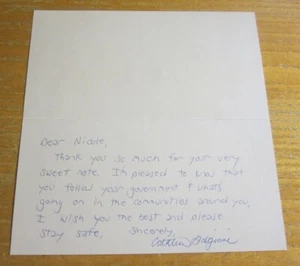 Dear Nicole,
Thank you so much for your very
sweet note. I'm pleased to know that
you follow your government & what's
going on in the communities around you.
I wish you the best and please
stay safe, Sincerely,